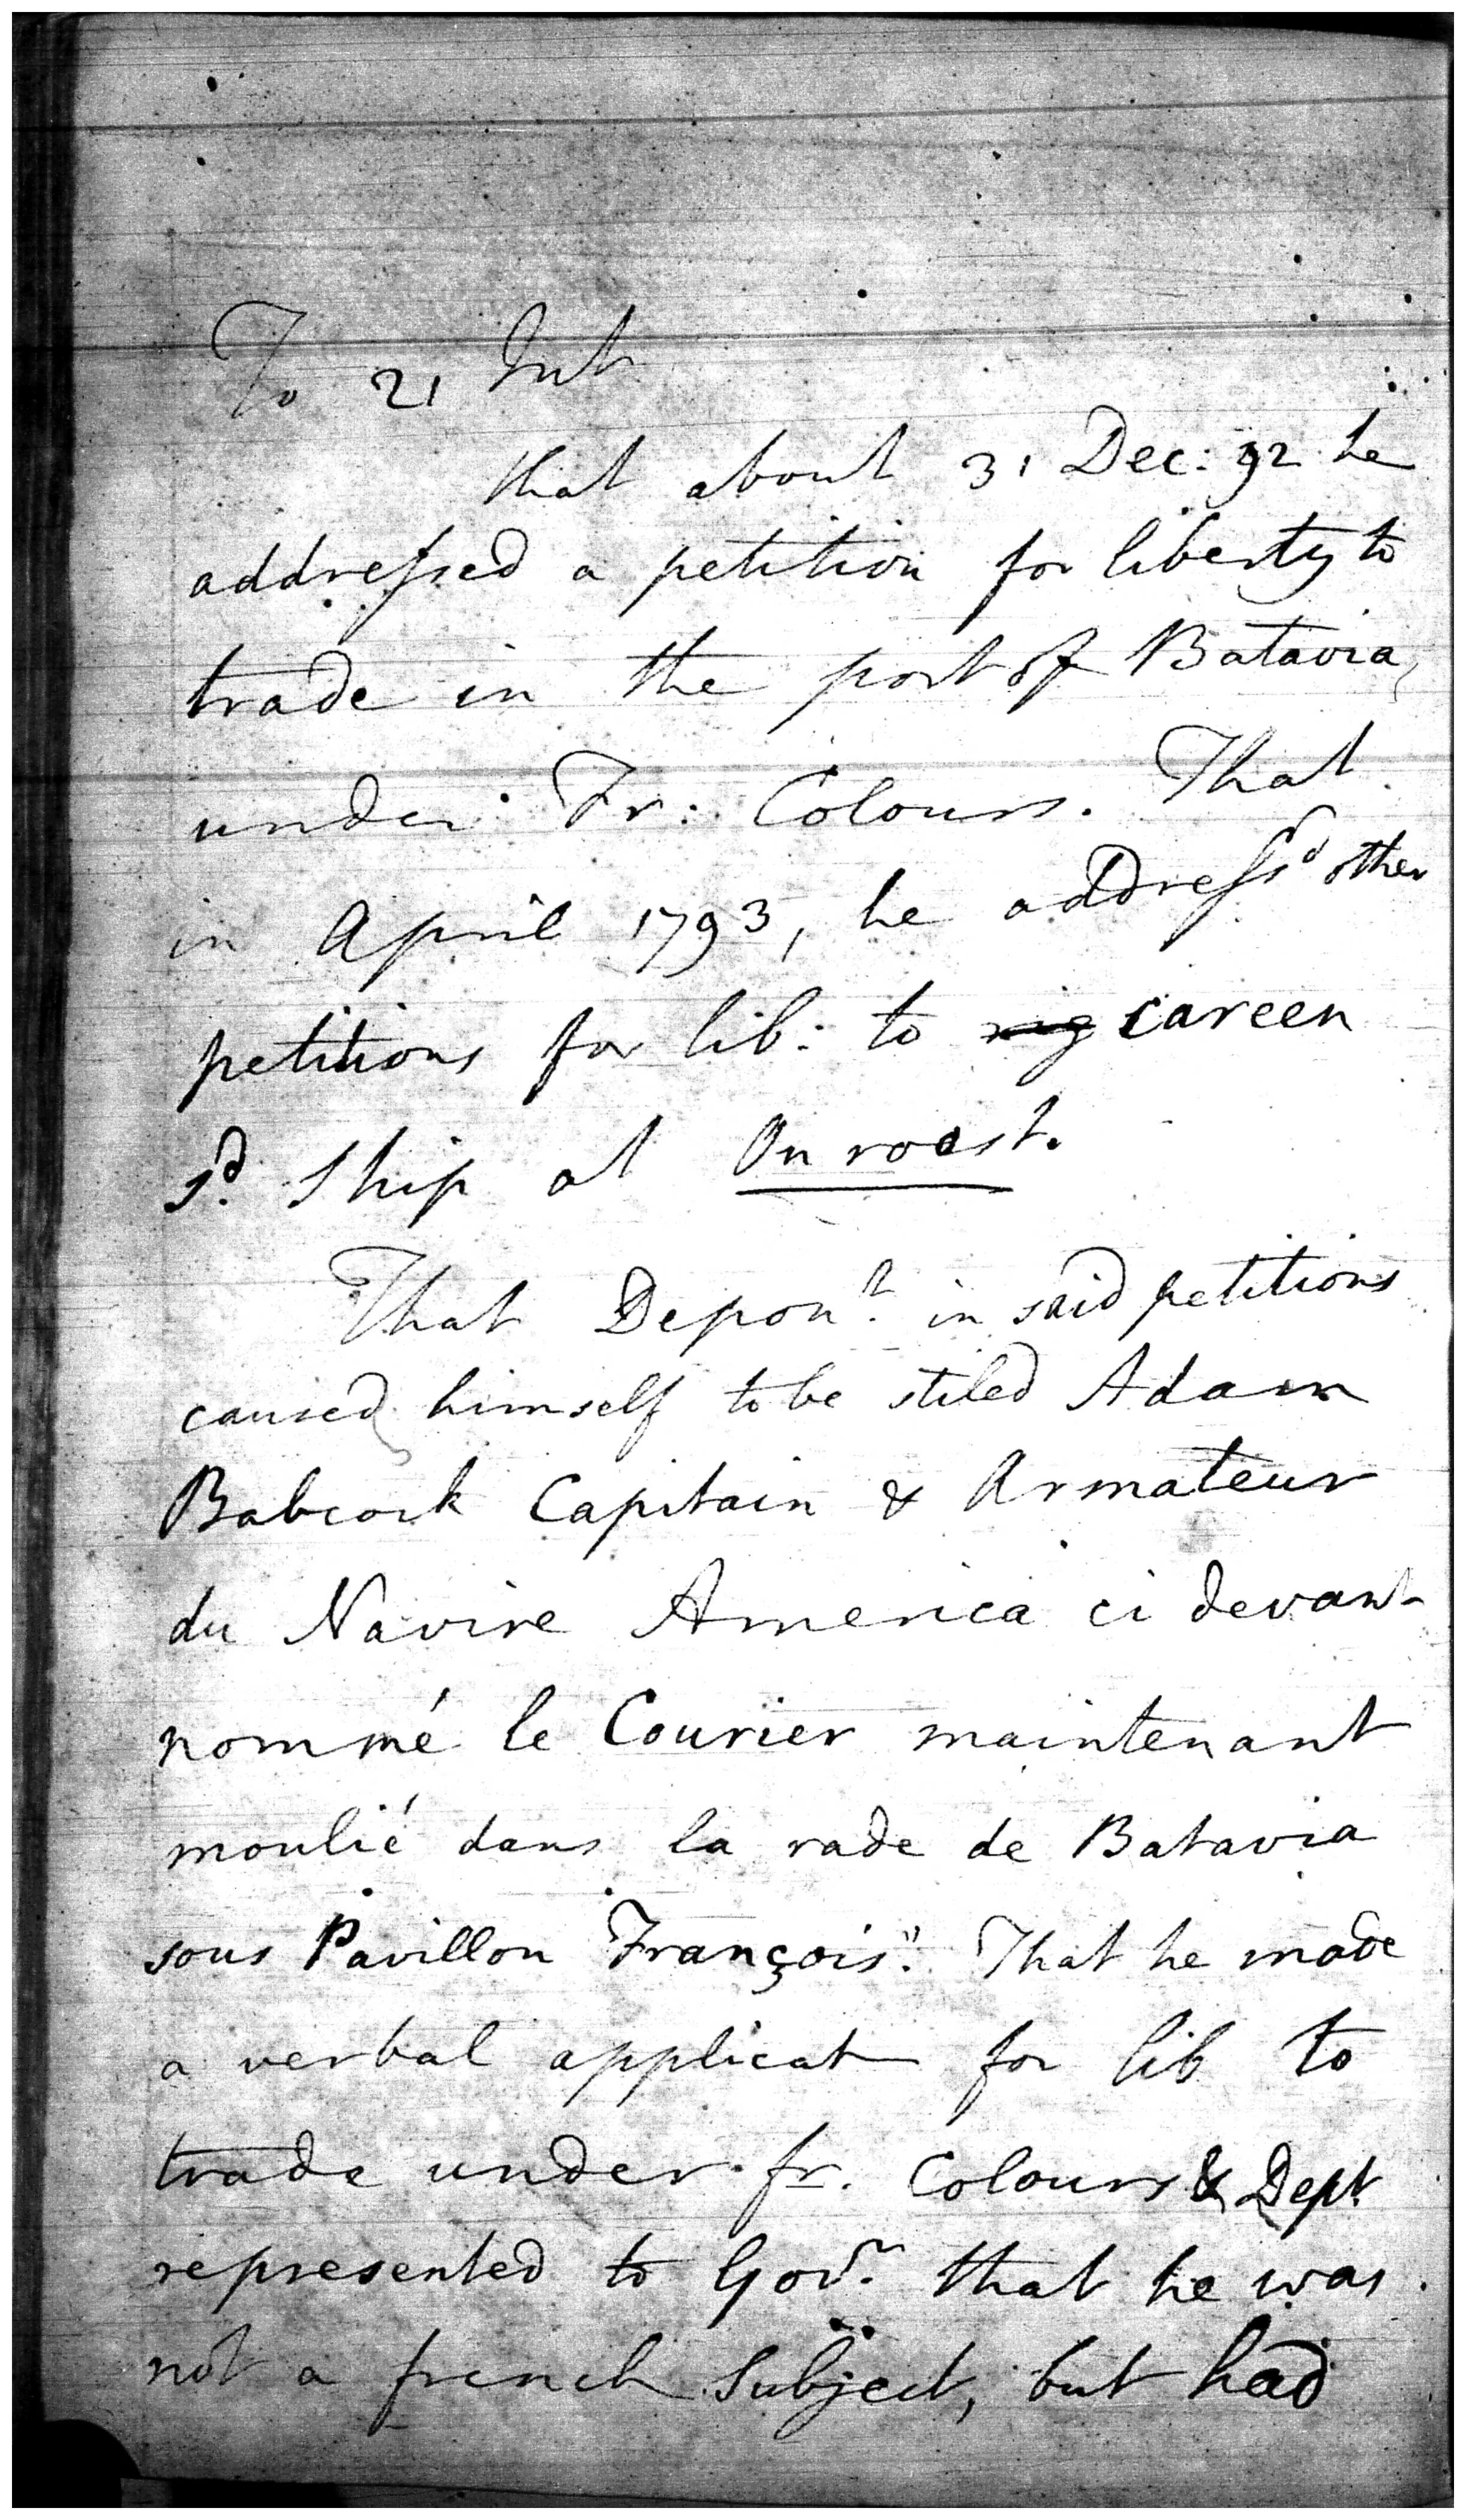 To 21 Int
that about 31 Dec: 92 he
addressed a petition for liberty to
trade in the port of Batavia,
under Fr: Colours. That
in April 1793, he address'd other
petitions for lib: to rig careen
sd. Ship at Onroost.
That Depont. in said petitions
caused himself to be stiled Adam
Babcock Capitain & Armateur
du Navire America ci devant
nommé le Courier maintenant
moulié dans la rade de Batavia
sous Pavillon François". That he made
a verbal applicat for lib to
trade under fr. Colours & Dept
represented to Govr. that he was
not a french Subject, but had